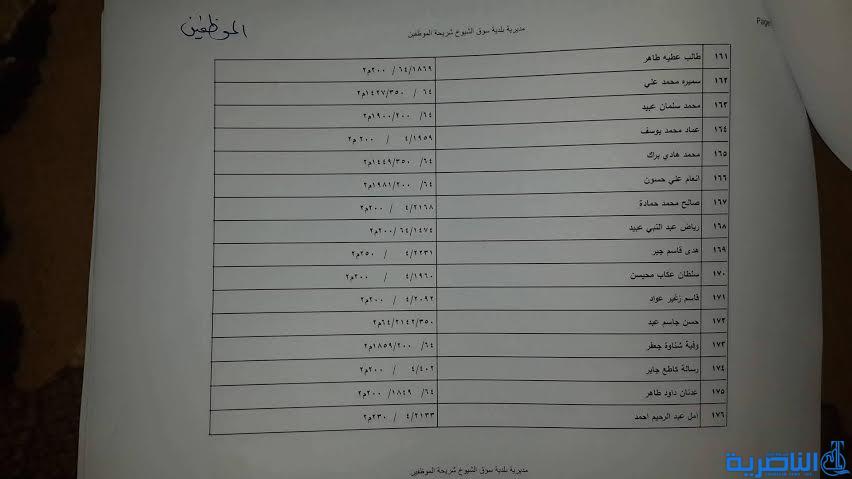 الموظفين
مديرية بلدية سوق الشيوخ شريحة الموظفين
Page
١٦١ طالب عطيه طاهر ٦٤/١٨٦٩ / ٢٠٠م٢
١٦٢ سميره محمد علي ٦٤ / ١٤٢٧/٣٥٠م٢
١٦٣ محمد سلمان عبيد ٦٤/ ١٩٠٠/٢٠٠م٢
١٦٤ عماد محمد يوسف ٤/١٩٥٩ / ٢٠٠ م٢
١٦٥ محمد هادي براك ٦٤/ ١٤٤٩/٣٥٠م٢
١٦٦ انعام علي حسون ٦٤/ ١٩٨١/٢٠٠م٢
١٦٧ صالح محمد حمادة ٤/٢١٦٨ / ٢٠٠م٢
١٦٨ رياض عبد النبي عبيد ٦٤/١٤٧٤ /٢٠٠م٢
١٦٩ هدى قاسم جبر ٤/٢٢٣١ / ٢٥٠م٢
١٧٠ سلطان عكاب محيسن ٤/١٩٦٠ / ٢٠٠م٢
١٧١ قاسم زغير عواد ٤/٢٠٩٢ / ٢٠٠م٢
١٧٢ حسن جاسم عبد ٦٤/٢١٤٢/٣٥٠م٢
١٧٣ وفية شناوة جعفر ٦٤/ ١٨٥٩/٢٠٠م٢
١٧٤ رسالة كاطع جابر ٤/٤٠٢ / ٢٠٠م٢
١٧٥ عدنان داود طاهر ٦٤/ ١٨٤٩/ ٢٠٠م٢
١٧٦ امل عبد الرحيم احمد ٤/٢١٣٣ / ٢٣٠م٢
مديرية بلدية سوق الشيوخ شريحة الموظفين
الناصرية